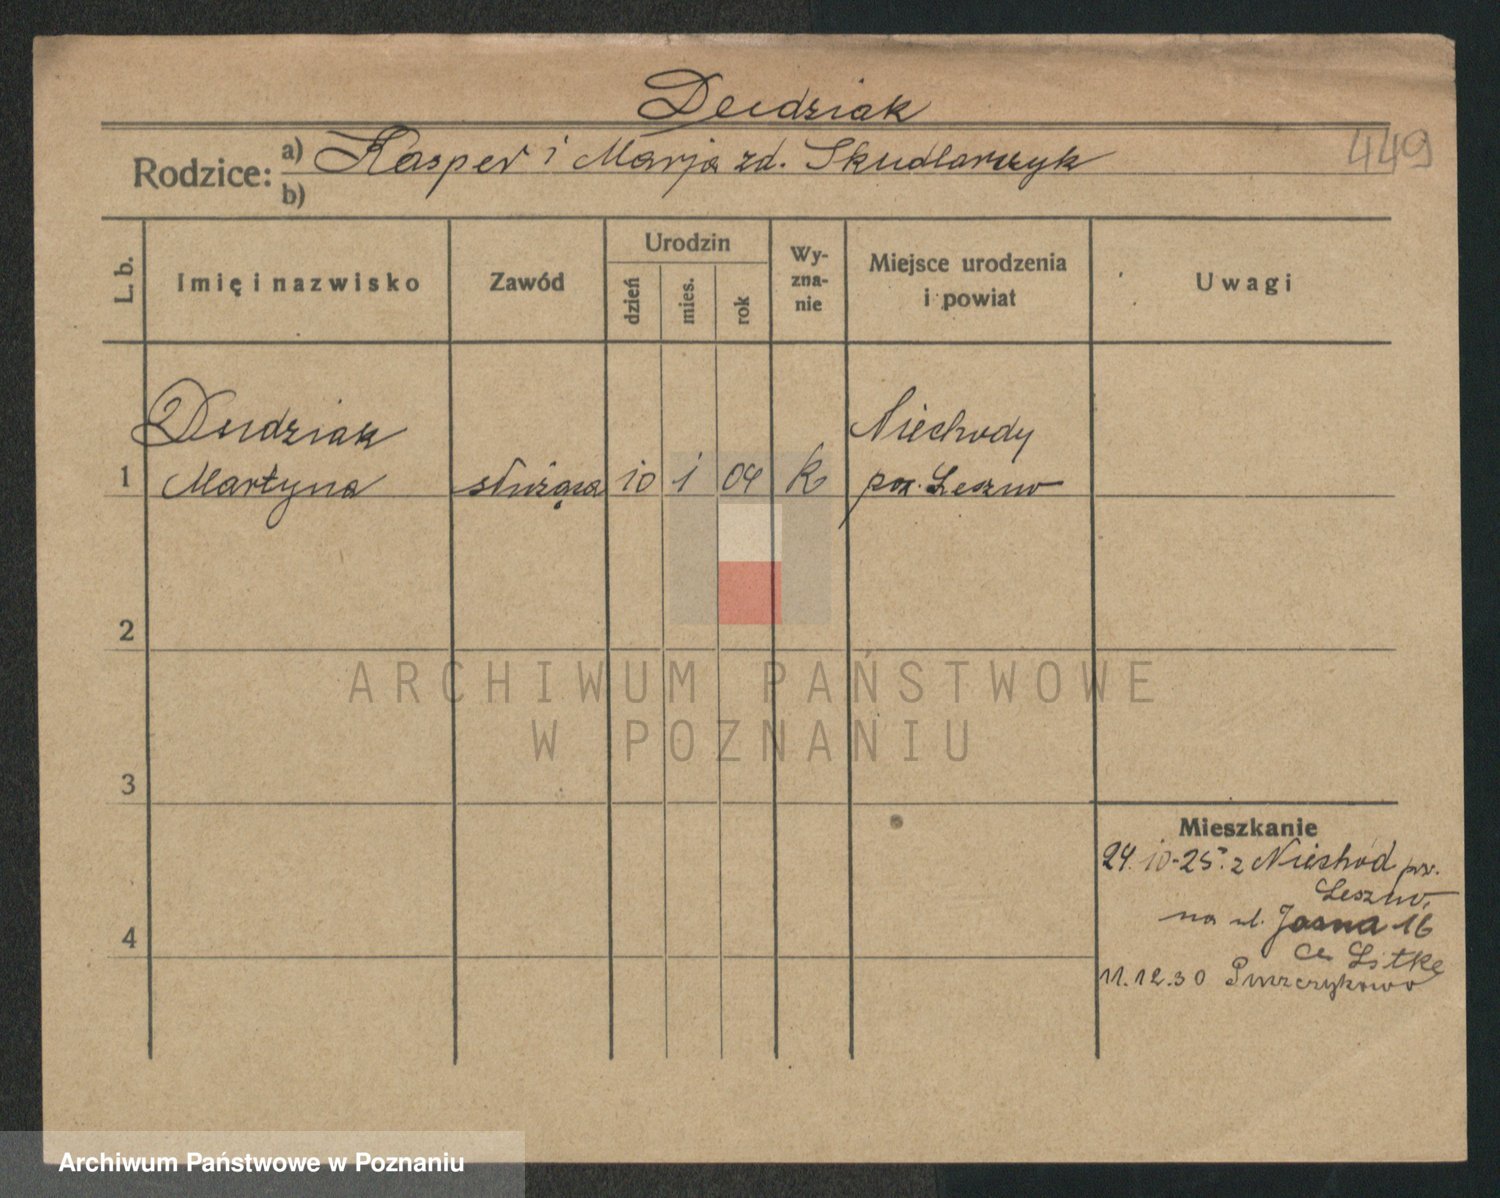 Dudziak
449
Rodzice: a) Kasper i Marja zd. Skudlarczyk
b)
L. b.
Imię i nazwisko
Zawód
Urodzin
dzień
mies.
rok
Wy-
zna-
nie
Miejsce urodzenia
i powiat
Uwagi
Dudziak
Niechody
1 Martyna służąca 10 1 04 k pow. Leszno
2
ARCHIWUM PAŃSTWOWE
W POZNANIU
3
Mieszkanie
24.10-25. z Niechód pow.
Leszno,
4
na ul. Jasna 16
Litke
11.12.30 Puszczykowo
Archiwum Państwowe w Poznaniu